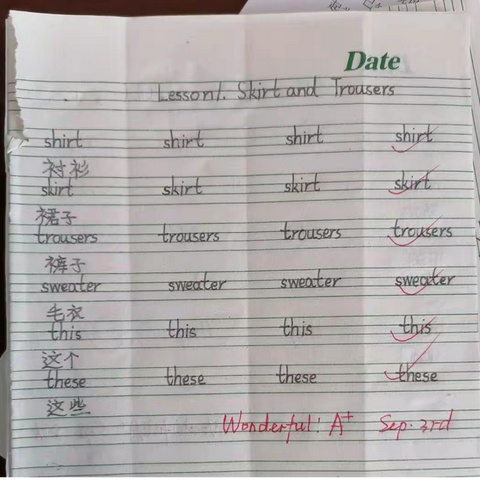 Date
Lesson 1. Skirt and Trousers
shirt shirt shirt shirt
衬衫
skirt skirt skirt skirt
裙子
trousers trousers trousers trousers
裤子
sweater sweater sweater sweater
毛衣
this this this this
这个
these these these these
这些
Wonderful! A+ Sep. 3rd